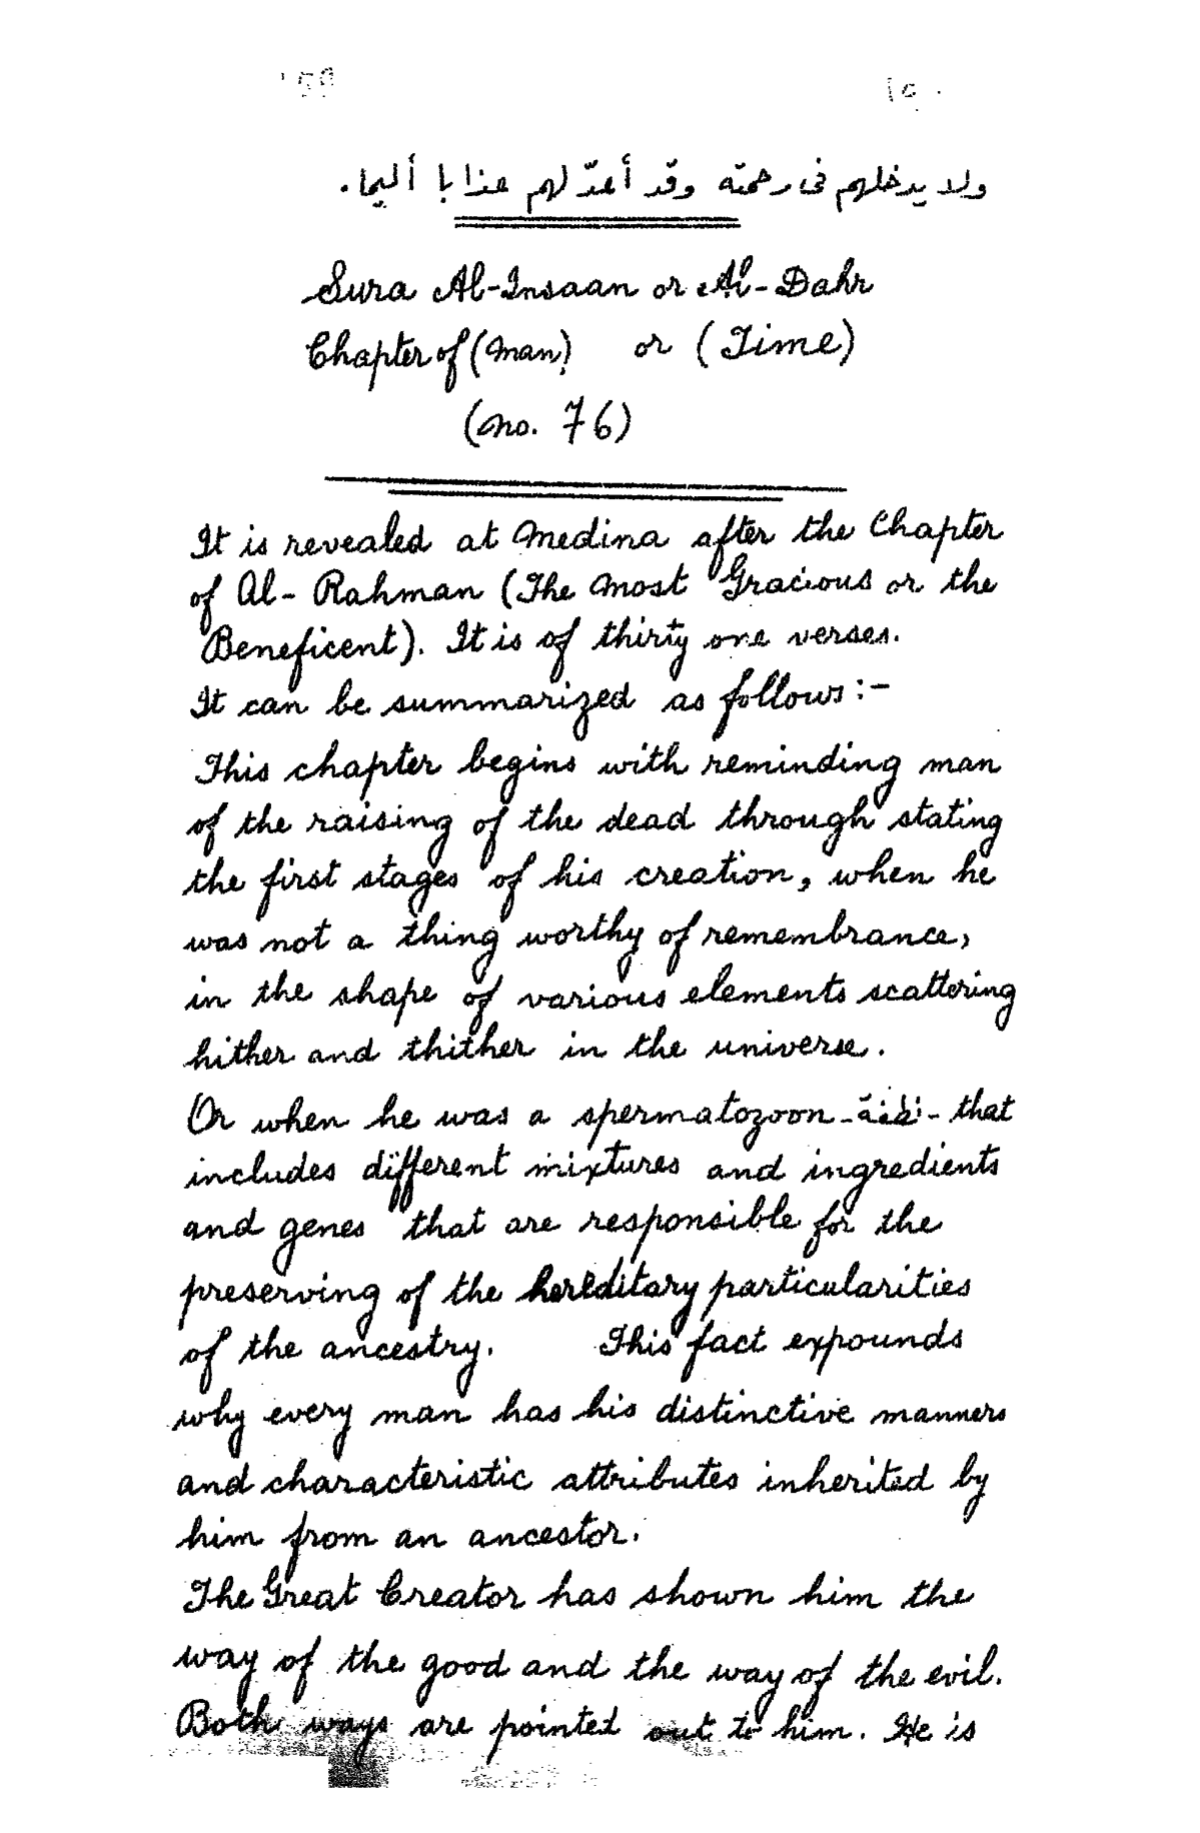 ولا يدخلهم فى رحمته وقد أعدّ لهم عذابا أليما.
Sura Al-Insaan or Al-Dahr
Chapter of (Man) or (Time)
(no. 76)
It is revealed at Medina after the Chapter
of Al-Rahman (The Most Gracious or the
Beneficent). It is of thirty one verses.
It can be summarized as follows:-
This chapter begins with reminding man
of the raising of the dead through stating
the first stages of his creation, when he
was not a thing worthy of remembrance,
in the shape of various elements scattering
hither and thither in the universe.
Or when he was a spermatozoon - نطفة - that
includes different mixtures and ingredients
and genes that are responsible for the
preserving of the hereditary particularities
of the ancestry. This fact expounds
why every man has his distinctive manners
and characteristic attributes inherited by
him from an ancestor.
The Great Creator has shown him the
way of the good and the way of the evil.
Both ways are pointed out to him. He is